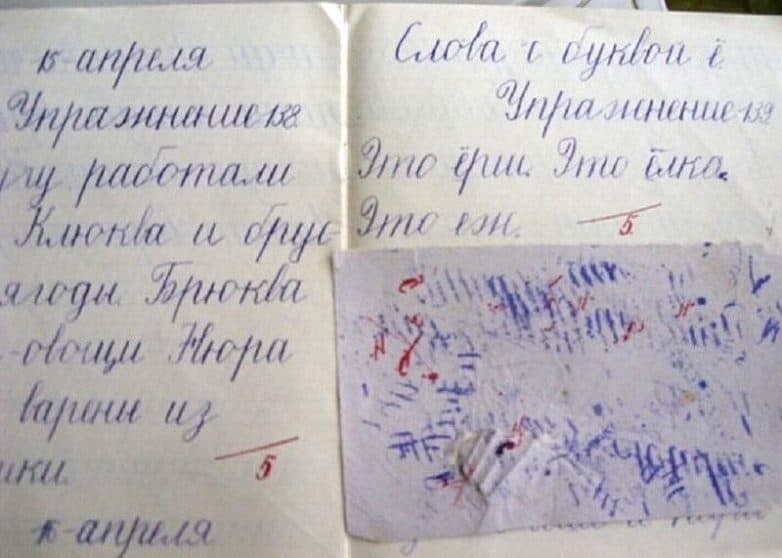 15-апреля
Упражнение-158
учу работали
Клюква и брус-
ягоды. Брюква
-овощи Нюра
варенье из
5
апреля
Слова с буквой ё.
Упражнение-159
Это ёрш. Это ёлка.
Это еж.
5